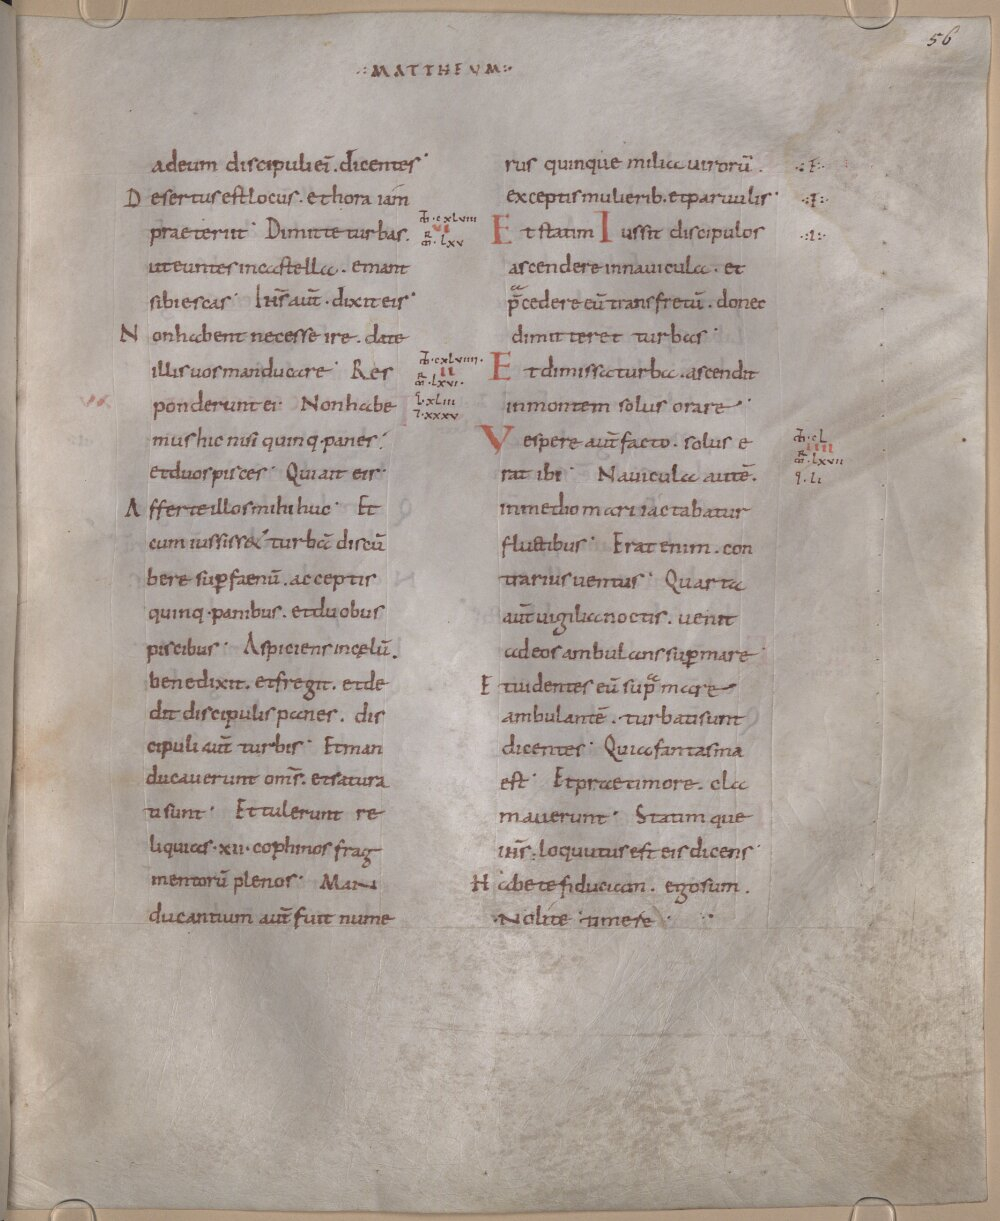 56
·:MATTHEUM:·
adeum discipuli eī. dicentes·
Desertus est locus. et hora iam
praeteriit· Dimitte turbas.
ut euntes in castella. emant
sibi escas· Ihs̄ aut̄. dixit eis·
Non habent necesse ire. date
illis vos manducare· Res
ponderunt ei· Non habe
mus hic nisi quinq· panes·
et duos pisces· Qui ait eis·
Afferte illos mihi huc· Et
cum iussiss& turbā discū
bere sup faenū. acceptis
quinq· panibus. et duobus
piscibus· Aspiciens in cęlū.
benedixit. et fregit. et de
dit discipulis panes. dis
cipuli aut̄ turbis· Et man
ducaverunt oms̄. et satura
ti sunt· Et tulerunt re
liquias ·xii· cophinos frag
mentorū plenos· Man
ducantium aut̄ fuit nume
m̄t·cxlviii
vi
m̄r·lxv
m̄t·cxlviiii·
ii
m̄r·lxvi·
l·xliii
i·xxxv
rus quinque milia virorū.
exceptis mulierib. et parvulis·
Et statim Iussit discipulos
ascendere in navicula. et
p̄cedere eū trans fretū. donec
dimitteret turbas·
Et dimissa turba. ascendit
in montem solus orare·
Vespere aut̄ facto. solus e
rat ibi· Navicula autē.
in medio mari iactabatur
fluctibus· Erat enim. con
trarius ventus· Quarta
aut̄ vigilia noctis. venit
ad eos ambulans sup mare
Et videntes eū sup̄ mare
ambulantē. turbati sunt
dicentes· Quia fantasma
est· Et prae timore. cla
maverunt· Statim que
ihs̄. loquutus est eis dicens·
Habete fiduciam. ego sum.
Nolite timere·
m̄t·cl
iiii
m̄r·lxvii
i·li